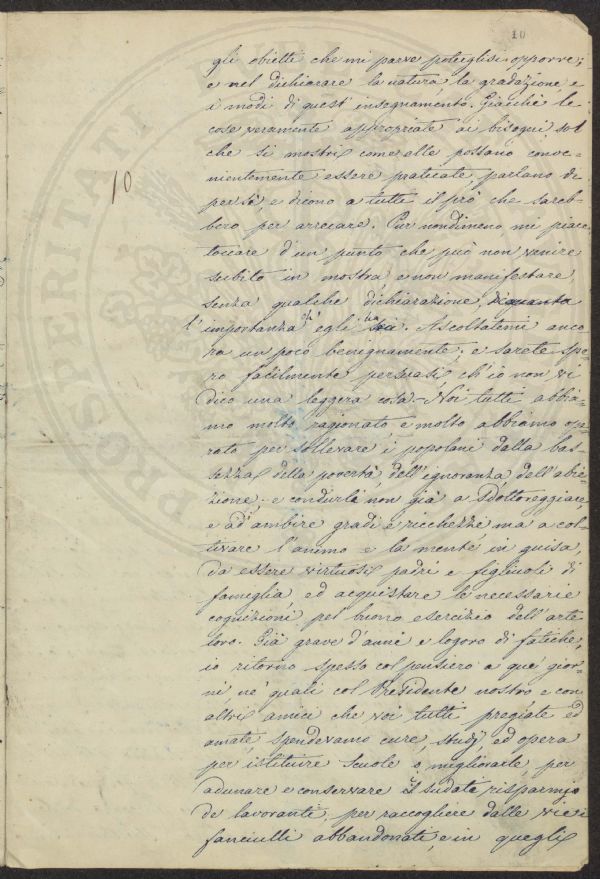 10
gli obietti che mi parve poteglisi opporre;
e nel dichiarare la natura, la gradazione e
i modi di quest'insegnamento. Giacchè le
cose veramente appropriate ai bisogni sol
che si mostri come elle possano conve-
nientemente essere praticate, parlano di
per sè, e dicono a tutti il prò che sareb-
bero per arrecare. Pur nondimeno mi piace
toccare d'un punto che può non venire
subito in mostra e non manifestare,
senza qualche dichiarazione, di quanta
l'importanza ch'egli ha. Ascoltatemi anco-
ra un poco benignamente; e sarete spe-
ro facilmente persuasi, ch'io non vi
dico una leggera cosa. - Noi tutti abbia-
mo molto ragionato, e molto abbiamo ope-
rato per sollevare i popolani dalla bas-
sezza della povertà, dell'ignoranza, dell'abie-
zione; e condurli non già a Ddottoreggiare,
e ad ambire gradi e ricchezze ma a col-
tivare l'animo e la mente in guisa,
da essere virtuosi padri e figliuoli di
famiglia, ed acquistare le necessarie
cognizioni pel buono esercizio dell'arte
loro. Già grave d'anni e logoro di fatiche,
io ritorno spesso col pensiero a que' gior-
ni ne' quali col Presidente nostro e con
altri amici che voi tutti pregiate ed
amate, spendevamo cure, studj, ed opera
per istituire Scuole o migliorarle, per
adunare e conservare il sudato risparmio
de' lavoranti, per raccogliere dalle vie i
fanciulli abbandonati, e in quegli
10
PROSPERITATI